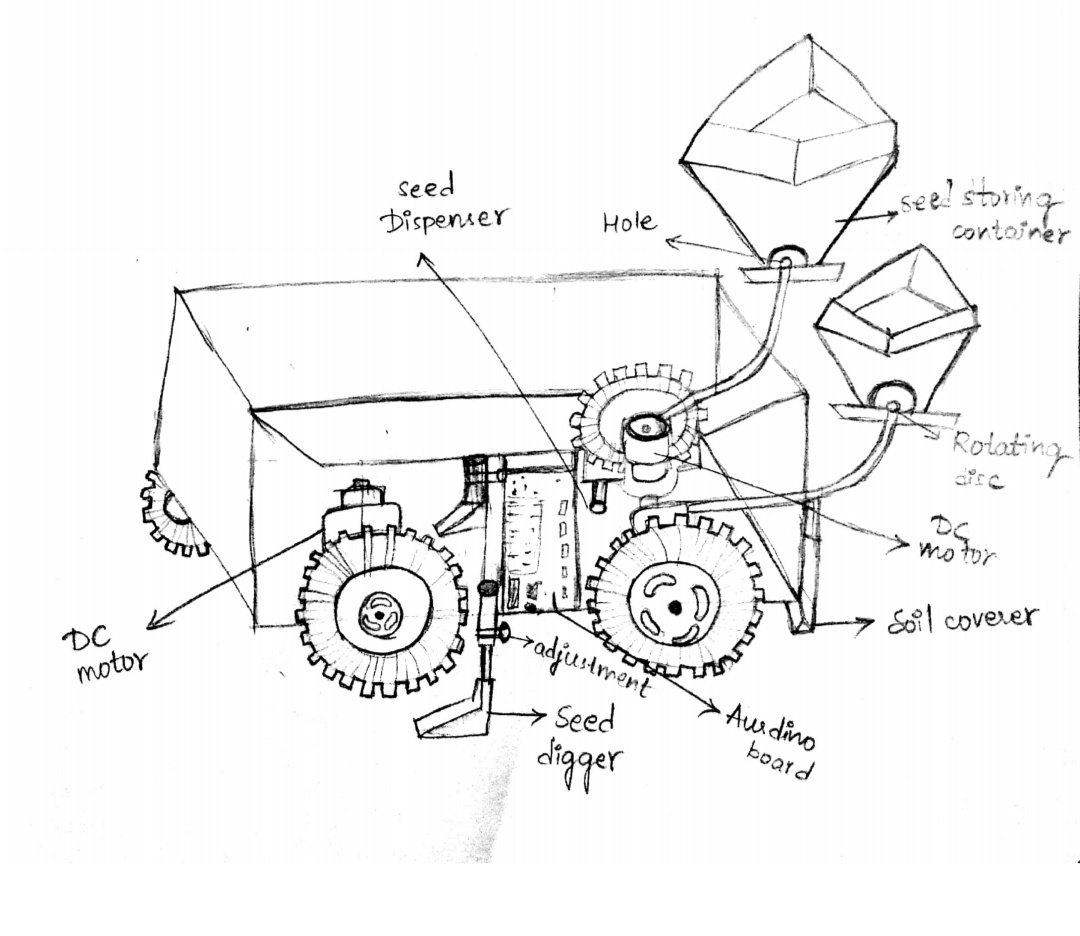 seed
Dispenser
Hole
seed storing
container
Rotating
disc
DC
motor
Soil coverer
DC
motor
adjustment
Seed
digger
Aurdino
board